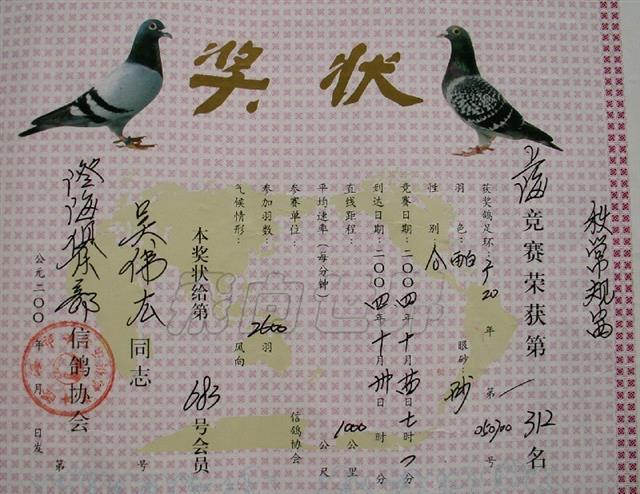 奖状
秋常规赛
竞赛荣获第312名
获奖鸽足环: 20 年 第 050700 号
羽色: 眼砂:砂
性别:
竞赛日期:二〇〇四年十月 日七时 分
到达日期:二〇〇四年十月卅日 时 分
直线距程: 1000 公里 公尺
平均速率(每分钟)
参赛单位: 信鸽协会
参加羽数: 2600 羽
气候情形: 风向
本奖状给第 683 号会员
吴伟 同志
澄海俱乐部信鸽协会
公元二〇〇 年 月 日发 第 号